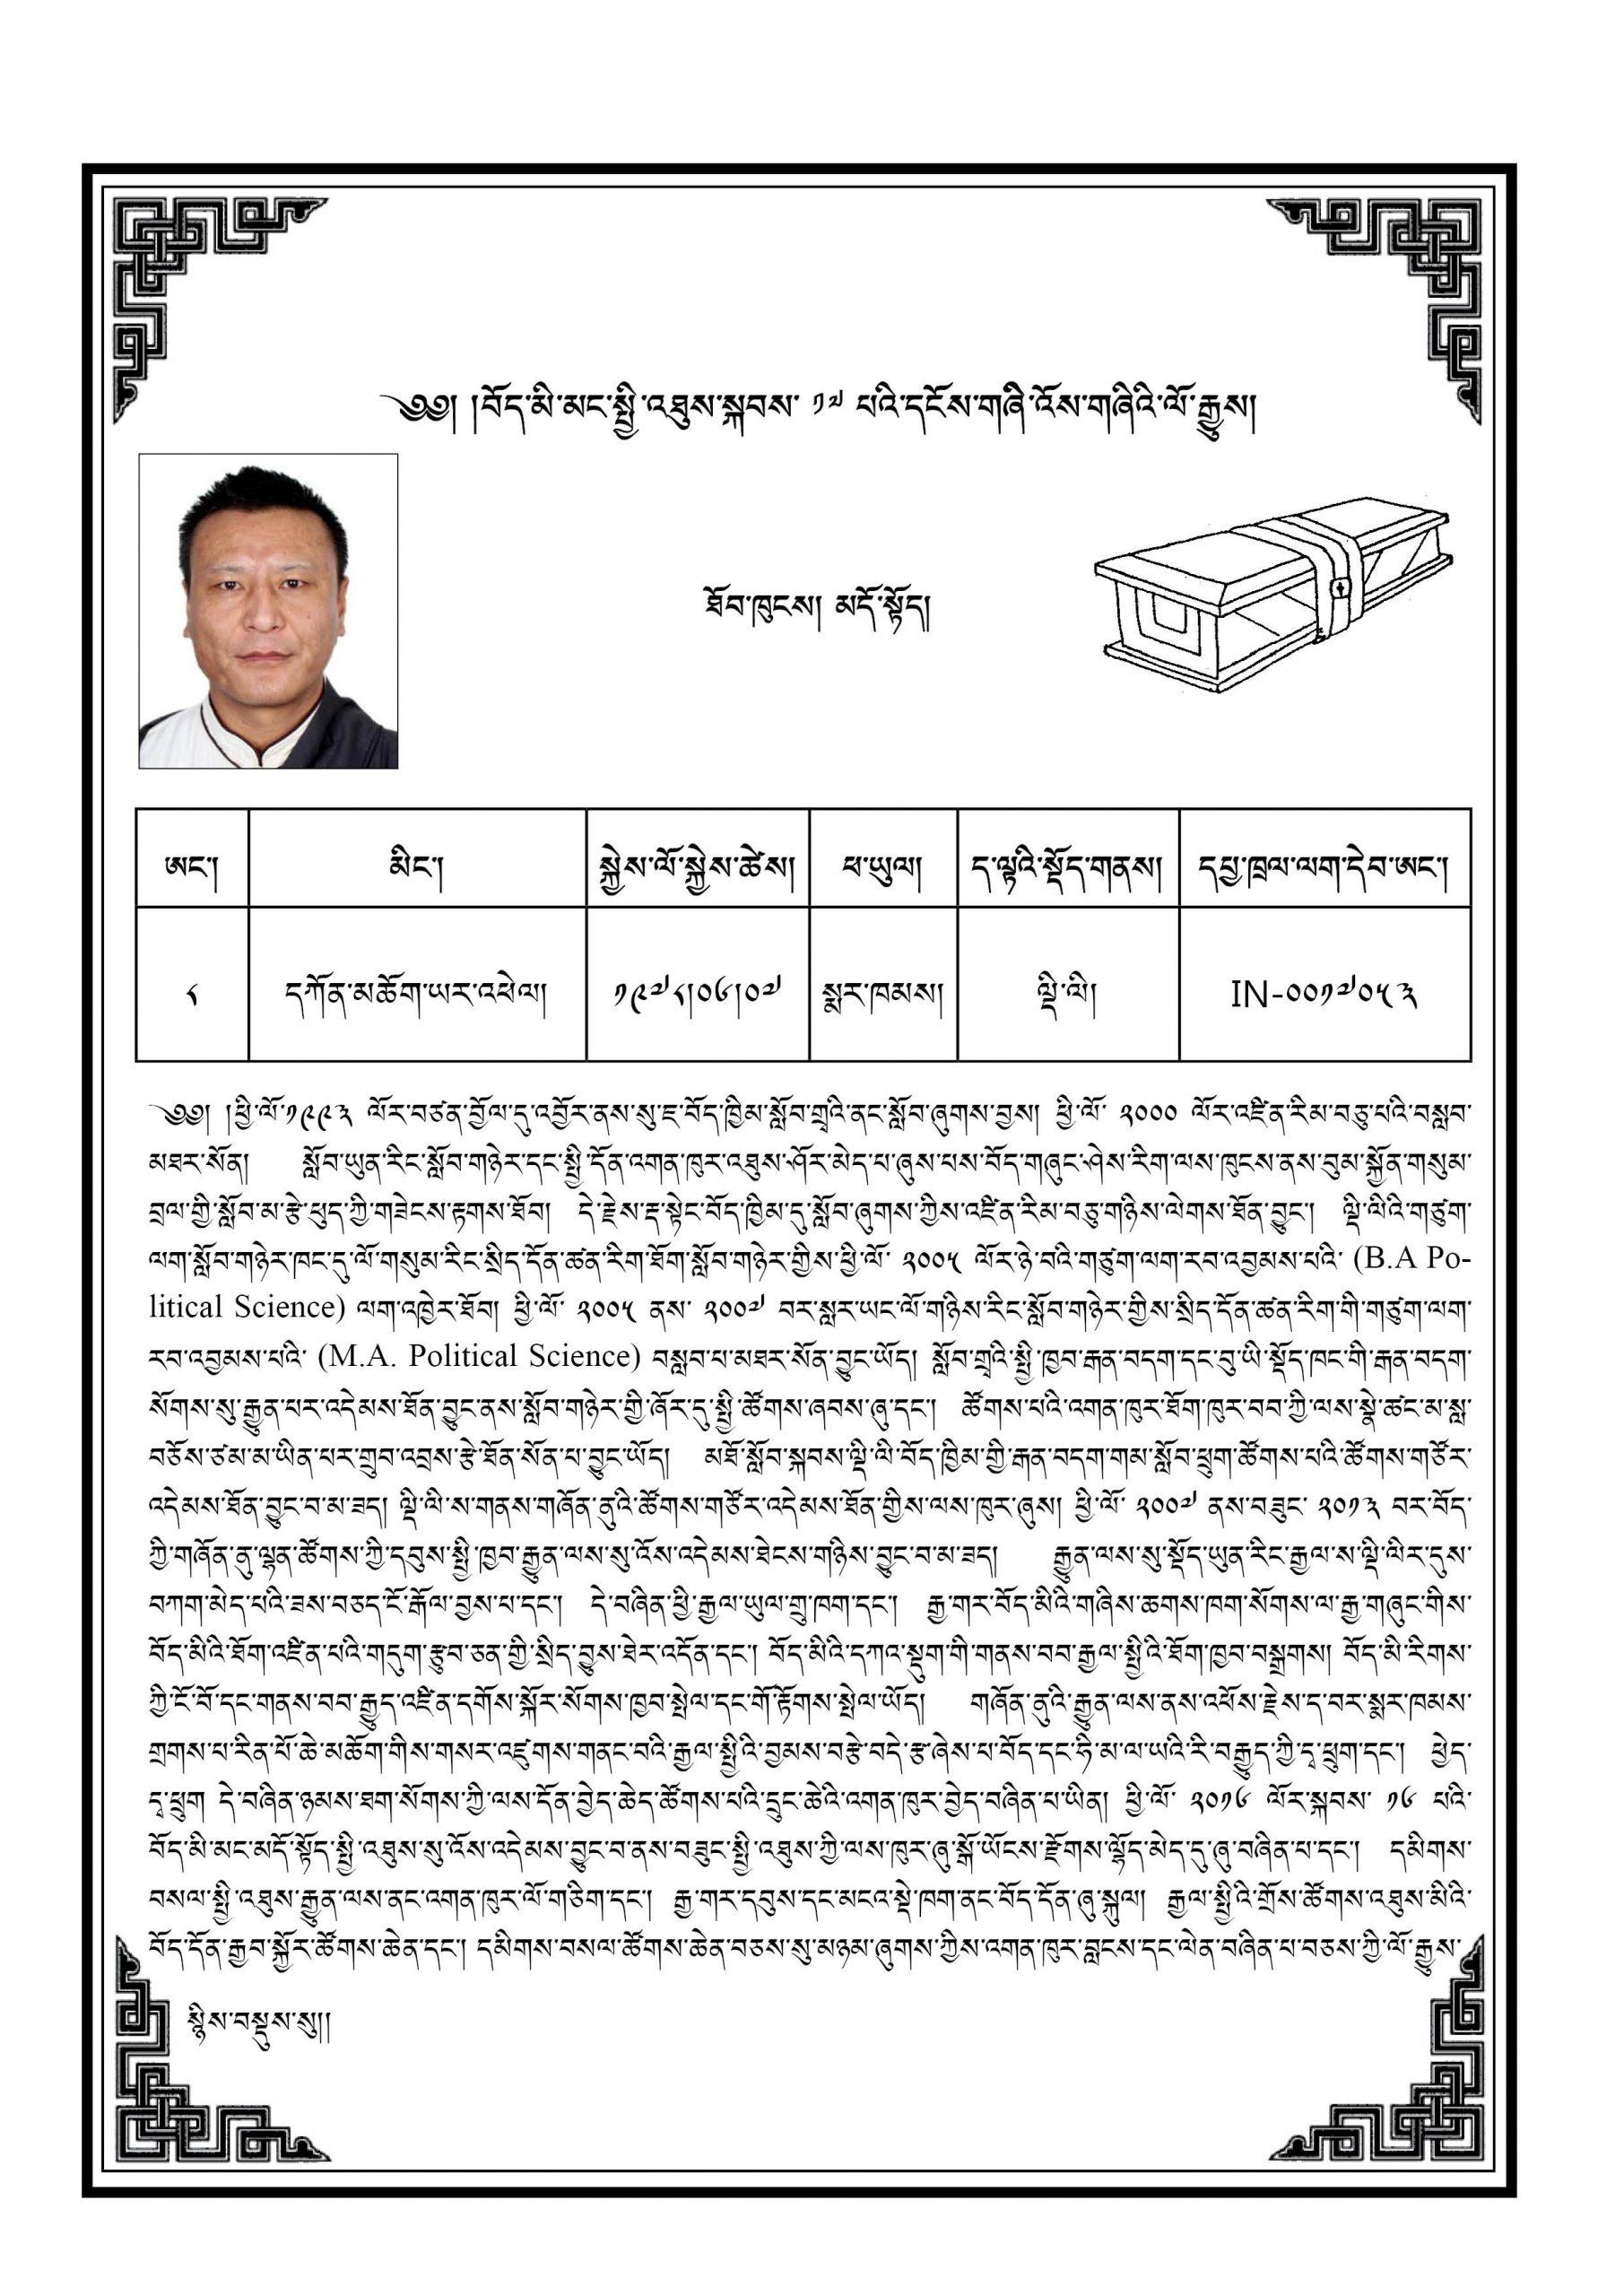 ༄༅། །བོད་མི་མང་སྤྱི་འཐུས་སྐབས་ ༡༧ པའི་དངོས་གཞིའི་འོས་གཞིའི་ལོ་རྒྱུས།
ཐོབ་ཁུངས། མདོ་སྟོད།
ཨང་། མིང་། སྐྱེས་ལོ་སྐྱེས་ཚེས། ཕ་ཡུལ། ད་ལྟའི་སྡོད་གནས། དཔྱ་ཁྲལ་ལག་དེབ་ཨང་།
༨ དཀོན་མཆོག་ཡར་འཕེལ། ༡༩༧༨།༠༦།༠༧ སྨར་ཁམས། ལྡི་ལི། IN-༠༠༡༧༠༥༣
༄༅། །ཕྱི་ལོ་༡༩༩༣ ལོར་བཙན་བྱོལ་དུ་འབྱོར་ནས་སུ་ཇ་བོད་ཁྱིམ་སློབ་གྲྭའི་ནང་སློབ་ཞུགས་བྱས། ཕྱི་ལོ་ ༢༠༠༠ ལོར་འཛིན་རིམ་བཅུ་པའི་བསླབ་
མཐར་སོན། སློབ་ཡུན་རིང་སློབ་གཉེར་དང་སྤྱི་དོན་འགན་ཁུར་འཐུས་ཤོར་མེད་པ་ཞུས་པས་བོད་གཞུང་ཤེས་རིག་ལས་ཁུངས་ནས་བུམ་སྐྱོན་གསུམ་
བྲལ་གྱི་སློབ་མ་རྩེ་ཕུད་ཀྱི་གཟེངས་རྟགས་ཐོབ། དེ་རྗེས་རྡ་སྟེང་བོད་ཁྱིམ་དུ་སློབ་ཞུགས་ཀྱིས་འཛིན་རིམ་བཅུ་གཉིས་ལེགས་ཐོན་བྱུང་། ལྡི་ལིའི་གཙུག་
ལག་སློབ་གཉེར་ཁང་དུ་ལོ་གསུམ་རིང་སྲིད་དོན་ཚན་རིག་ཐོག་སློབ་གཉེར་གྱིས་ཕྱི་ལོ་ ༢༠༠༥ ལོར་ཉེ་བའི་གཙུག་ལག་རབ་འབྱམས་པའི་ (B.A Po-
litical Science) ལག་འཁྱེར་ཐོབ། ཕྱི་ལོ་ ༢༠༠༥ ནས་ ༢༠༠༧ བར་སླར་ཡང་ལོ་གཉིས་རིང་སློབ་གཉེར་གྱིས་སྲིད་དོན་ཚན་རིག་གི་གཙུག་ལག་
རབ་འབྱམས་པའི་ (M.A. Political Science) བསླབ་པ་མཐར་སོན་བྱུང་ཡོད། སློབ་གྲྭའི་སྤྱི་ཁྱབ་རྒན་བདག་དང་བུ་ཡི་སྡོད་ཁང་གི་རྒན་བདག་
སོགས་སུ་རྒྱུན་པར་འདེམས་ཐོན་བྱུང་ནས་སློབ་གཉེར་གྱི་ཞོར་དུ་སྤྱི་ཚོགས་ཞབས་ཞུ་དང་། ཚོགས་པའི་འགན་ཁུར་ཐོག་ཁུར་བབ་ཀྱི་ལས་སྣེ་ཚང་མ་སླ་
བཅོས་ཙམ་མ་ཡིན་པར་གྲུབ་འབྲས་རྩེ་ཐོན་སོན་པ་བྱུང་ཡོད། མཐོ་སློབ་སྐབས་ལྡི་ལི་བོད་ཁྱིམ་གྱི་རྒན་བདག་གམ་སློབ་ཕྲུག་ཚོགས་པའི་ཚོགས་གཙོར་
འདེམས་ཐོན་བྱུང་བ་མ་ཟད། ལྡི་ལི་ས་གནས་གཞོན་ནུའི་ཚོགས་གཙོར་འདེམས་ཐོན་གྱིས་ལས་ཁུར་ཞུས། ཕྱི་ལོ་ ༢༠༠༧ ནས་བཟུང་ ༢༠༡༣ བར་བོད་
ཀྱི་གཞོན་ནུ་ལྷན་ཚོགས་ཀྱི་དབུས་སྤྱི་ཁྱབ་རྒྱུན་ལས་སུ་འོས་འདེམས་ཐེངས་གཉིས་བྱུང་བ་མ་ཟད། རྒྱུན་ལས་སུ་སྡོད་ཡུན་རིང་རྒྱལ་ས་ལྡི་ལིར་དུས་
བཀག་མེད་པའི་ཟས་བཅད་ངོ་རྒོལ་བྱས་པ་དང་། དེ་བཞིན་ཕྱི་རྒྱལ་ཡུལ་གྲུ་ཁག་དང་། རྒྱ་གར་བོད་མིའི་གཞིས་ཆགས་ཁག་སོགས་ལ་རྒྱ་གཞུང་གིས་
བོད་མིའི་ཐོག་འཛིན་པའི་གདུག་རྩུབ་ཅན་གྱི་སྲིད་བྱུས་ཐེར་འདོན་དང་། བོད་མིའི་དཀའ་སྡུག་གི་གནས་བབ་རྒྱལ་སྤྱིའི་ཐོག་ཁྱབ་བསྒྲགས། བོད་མི་རིགས་
ཀྱི་ངོ་བོ་དང་གནས་བབ་རྒྱུད་འཛིན་དགོས་སྐོར་སོགས་ཁྱབ་སྤེལ་དང་གོ་རྟོགས་སྤེལ་ཡོད། གཞོན་ནུའི་རྒྱུན་ལས་ནས་འཕོས་རྗེས་ད་བར་སྨར་ཁམས་
གྲགས་པ་རིན་པོ་ཆེ་མཆོག་གིས་གསར་འཛུགས་གནང་བའི་རྒྱལ་སྤྱིའི་བྱམས་བརྩེ་བདེ་རྩ་ཞེས་པ་བོད་དང་ཧི་མ་ལ་ཡའི་རི་བརྒྱུད་ཀྱི་དྭ་ཕྲུག་དང་། ཕྱེད་
དྭ་ཕྲུག དེ་བཞིན་ཉམས་ཐག་སོགས་ཀྱི་ལས་དོན་བྱེད་ཆེད་ཚོགས་པའི་དྲུང་ཆེའི་འགན་ཁུར་བྱེད་བཞིན་པ་ཡིན། ཕྱི་ལོ་ ༢༠༡༦ ལོར་སྐབས་ ༡༦ པའི་
བོད་མི་མང་མདོ་སྟོད་སྤྱི་འཐུས་སུ་འོས་འདེམས་བྱུང་བ་ནས་བཟུང་སྤྱི་འཐུས་ཀྱི་ལས་ཁུར་ཞུ་སྒོ་ཡོངས་རྫོགས་ལྷོད་མེད་དུ་ཞུ་བཞིན་པ་དང་། དམིགས་
བསལ་སྤྱི་འཐུས་རྒྱུན་ལས་ནང་འགན་ཁུར་ལོ་གཅིག་དང་། རྒྱ་གར་དབུས་དང་མངའ་སྡེ་ཁག་ནང་བོད་དོན་ཞུ་སྐུལ། རྒྱལ་སྤྱིའི་གྲོས་ཚོགས་འཐུས་མིའི་
བོད་དོན་རྒྱབ་སྐྱོར་ཚོགས་ཆེན་དང་། དམིགས་བསལ་ཚོགས་ཆེན་བཅས་སུ་མཉམ་ཞུགས་ཀྱིས་འགན་ཁུར་བླངས་དང་ལེན་བཞིན་པ་བཅས་ཀྱི་ལོ་རྒྱུས་
སྙིས་བསྡུས་སུ།།